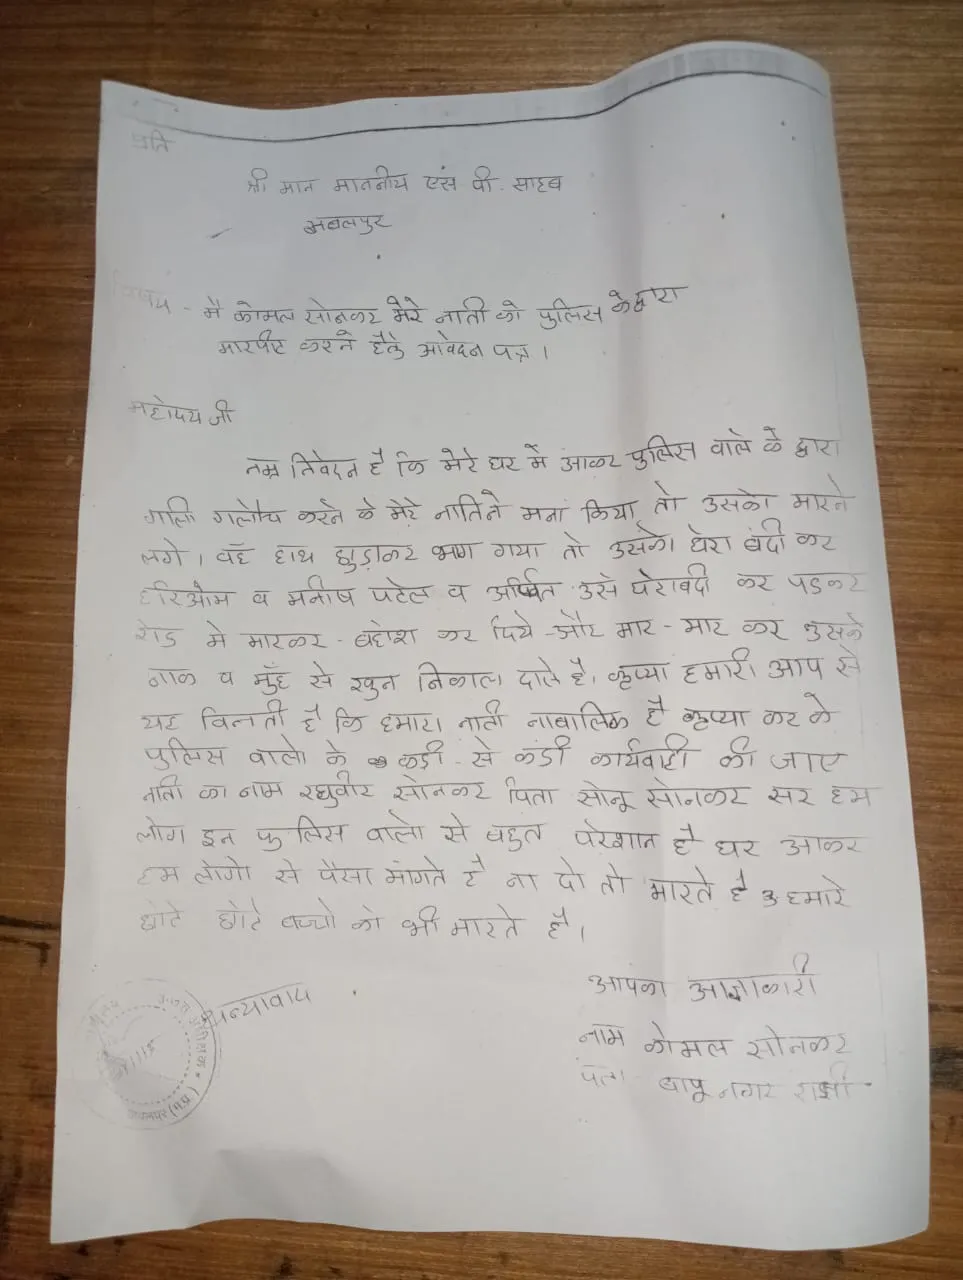 प्रति
श्री मान माननीय एस पी. साहब
जबलपुर
विषय - मै कोमल सोनकर मेरे नाती को पुलिस के द्वारा
मारपीट करने हेकु आवेदन पत्र।
महोदय जी
नम्र निवेदन है कि मेरे घर में आकर पुलिस वाले के द्वारा
गाली गलौच करने के मेरे नातिने मना किया तो उसको मारने
लगे। वह हाथ छुड़ाकर भाग गया तो उसको घेरा बंदी कर
हरिओम व मनीष पटेल व अर्पित उसे घेराबंदी कर पडकर
रोड मे मारकर - बेहोश कर दिये - और मार - मार कर उसके
नाक व मुँह से खुन निकाल दाले है। कृप्या हमारी आप से
यह विनती है कि हमारा नाती नाबालिक है कृप्या कर के
पुलिस वालो के कड़ी - से कडी कार्यवाही की जाए
नाती का नाम रघुवीर सोनकर पिता सोनू सोनकर सर हम
लोग इन पुलिस वालो से बहुत परेशान है घर आकर
हम लोगो से पैसा मांगते है ना दो तो मारते है हमारे
छोटे छोटे बच्चो को भी मारते है।
धन्यावाद
आपका आज्ञाकारी
नाम कोमल सोनकर
पता बापू नगर रांझी